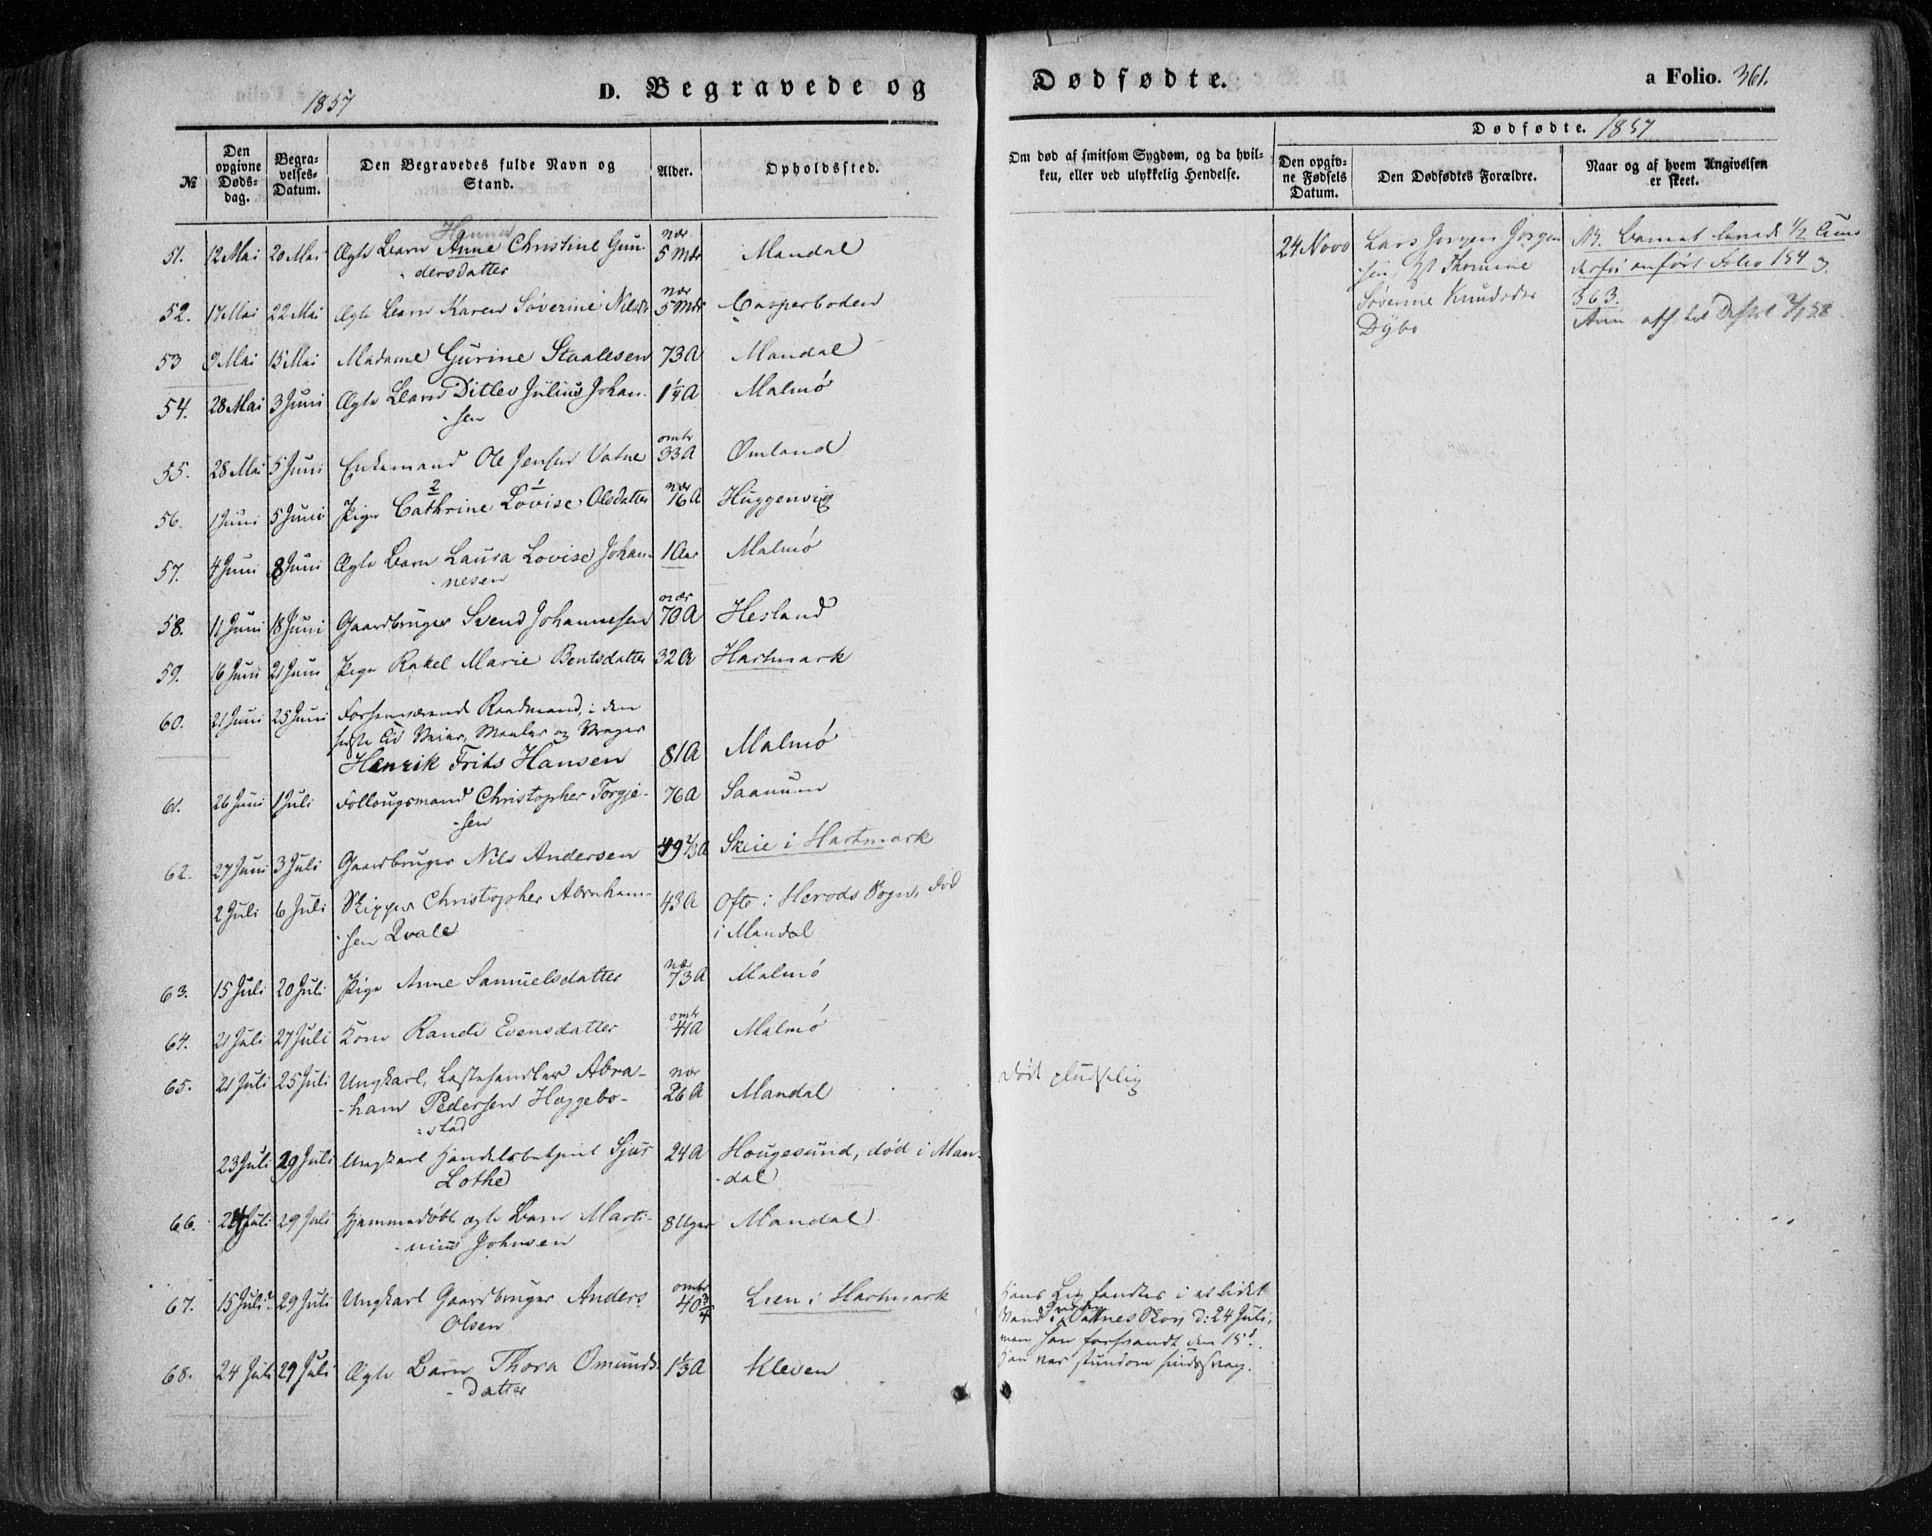 1857
D. Begravede og Dødfødte. a Folio. 361.
Dødfødte. 1857
№ Den opgivne Døds-dag. Begra-velses-Datum. Den Begravedes fulde Navn og Stand. Alder. Opholdssted. Om død af smitsom Sygdom, og da hvil-ken, eller ved ulykkelig Hendelse. Den opgiv-ne Fødsels Datum. Den Dødfødtes Forældre. Naar og af hvem Angivelsen er skeet.
Hanna
51. 12 Mai 20 Mai Ægte Barn Anne Christine Gun- nær 5 Mdr Mandal
dersdatter
24 Novb Lars Jørgen Jørgen-
sen,
Søverine Knudsdtr
Dybo
anført Folio 154 og
363.
52. 17 Mai 22 Mai Ægte Barn Karen Søverine Nilsdtr nær 5 Mdr Casperboden
53 9 Mai 15 Mai Madame Gurine Staalesen 73 A Mandal
54. 28 Mai 3 Juni Ægte Barn Ditlev Julius Johan- 1¼ A Malmø
sen
55. 28 Mai 5 Juni Enkemand Ole Jensen Vatne omtr 33 A Omland
2 1
56. 1 Juni 5 Juni Pige Cathrine Lovise Olsdatter nær 16 A Huggenvig
57. 4 Juni 8 Juni Ægte Barn Laura Lovise Johan- 1 Aar Malmø
nesen
58. 11 Juni 18 Juni Gaardbruger Svend Johannesen nær 70 A Hesland
59. 16 Juni 21 Juni Pige Rakel Marie Bentsdatter 32 A Hartmark
60. 21 Juni 25 Juni Forhenværende Raadmand, i den
sidste Tid Veier, Maaler og Vrager
Henrik Frits Hansen 81 A Malmø
61. 26 Juni 1 Juli Follougsmand Christopher Torgje- 76 A Saanum
sen
62. 27 Juni 3 Juli Gaardbruger Nils Andersen 49⅔ A Skeie i Hartmark
2 Juli 6 Juli Skipper Christopher Abraham- 43 A Ofte i Herods Sogn, død
sen Qvale i Mandal
63. 15 Juli 20 Juli Pige Anne Samuelsdatter nær 73 A Malmø
64. 21 Juli 27 Juli Kone Randi Evensdatter omtr 41 A Malmø
65. 21 Juli 25 Juli Ungkarl, Lastehandler Abra- nær 26 A Mandal død pludselig
ham Pedersen Høggebo-
stad
23 Juli 29 Juli Ungkarl Handelsbetjent Sjur 24 A Hougesund, død i Man-
Lothe dal
66. 24 Juli 29 Juli Hjemmedøbt ægte Barn Marti- 8 Uger Mandal
nius Johnsen
67. 15 Juli 29 Juli Ungkarl Gaardbruger Anders omtr 40¾ Lien i Hartmark
Olsen
Hans Lig fandtes i et lidet
Vand i Vatnes Skov d: 24 Juli,
men han forsvandt den 15d.
Han var stundom sindssvag.
68. 24 Juli 29 Juli Ægte Barn Thora Omunds- 1⅓ A Kleven
datter